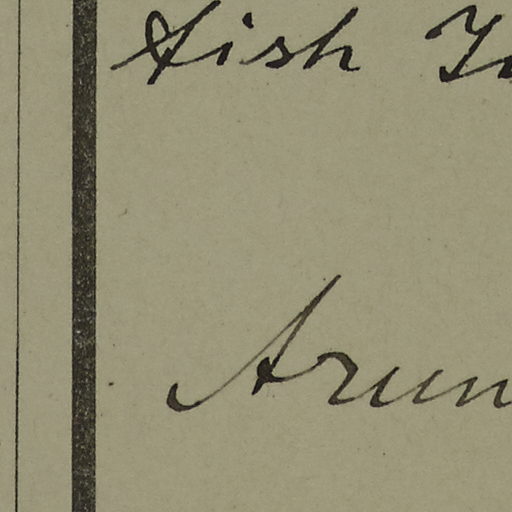 Fish
Arun